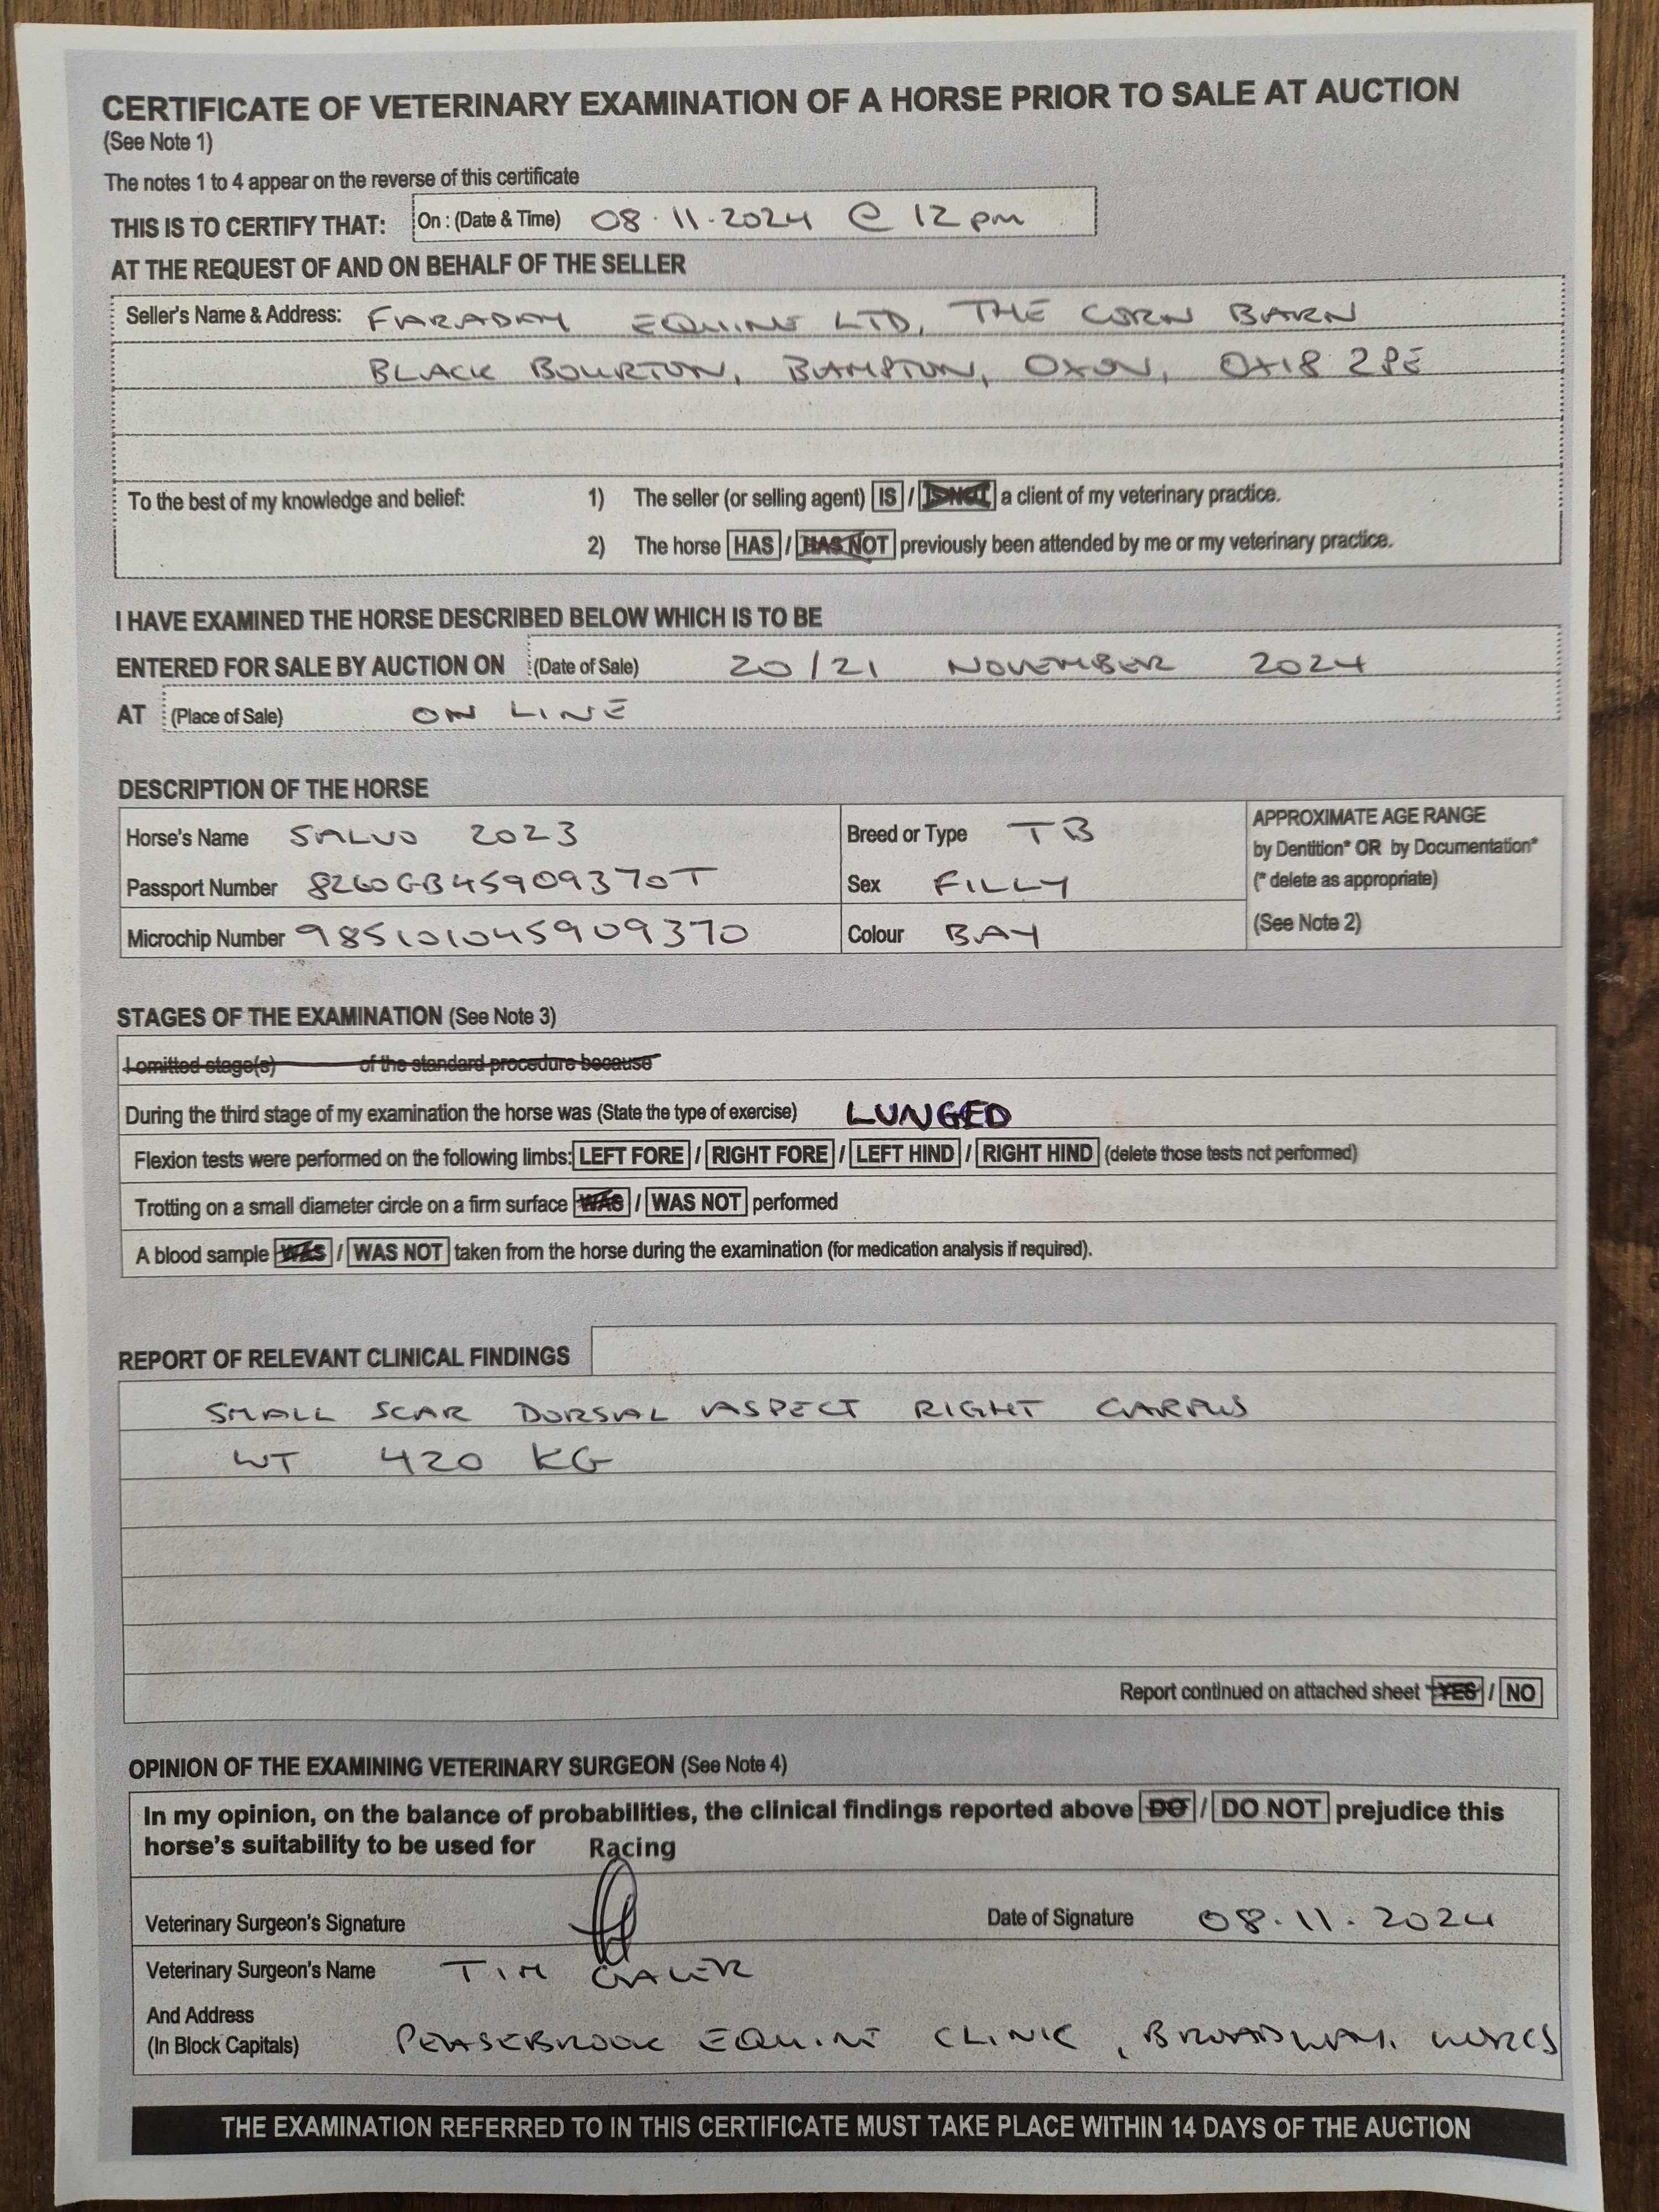 CERTIFICATE OF VETERINARY EXAMINATION OF A HORSE PRIOR TO SALE AT AUCTION
(See Note 1)
The notes 1 to 4 appear on the reverse of this certificate
THIS IS TO CERTIFY THAT: On : (Date & Time) 08.11.2024 @ 12pm
AT THE REQUEST OF AND ON BEHALF OF THE SELLER
Seller's Name & Address: FARADAY EQUINE LTD, THE CORN BARN
BLACK BOURTON, BAMPTON, OXON, OX18 2PE
To the best of my knowledge and belief: 1) The seller (or selling agent) IS / IS NOT a client of my veterinary practice.
2) The horse HAS / HAS NOT previously been attended by me or my veterinary practice.
I HAVE EXAMINED THE HORSE DESCRIBED BELOW WHICH IS TO BE
ENTERED FOR SALE BY AUCTION ON (Date of Sale) 20/21 NOVEMBER 2024
AT (Place of Sale) ON LINE
DESCRIPTION OF THE HORSE
Horse's Name SALVO 2023 Breed or Type TB APPROXIMATE AGE RANGE
by Dentition* OR by Documentation*
Passport Number 8260GB45909370T Sex FILLY (* delete as appropriate)
Microchip Number 985101045909370 Colour BAY (See Note 2)
STAGES OF THE EXAMINATION (See Note 3)
I omitted stage(s) of the standard procedure because
During the third stage of my examination the horse was (State the type of exercise) LUNGED
Flexion tests were performed on the following limbs: LEFT FORE / RIGHT FORE / LEFT HIND / RIGHT HIND (delete those tests not performed)
Trotting on a small diameter circle on a firm surface WAS / WAS NOT performed
A blood sample WAS / WAS NOT taken from the horse during the examination (for medication analysis if required).
REPORT OF RELEVANT CLINICAL FINDINGS
SMALL SCAR DORSAL ASPECT RIGHT CARPUS
WT 420 KG
Report continued on attached sheet YES / NO
OPINION OF THE EXAMINING VETERINARY SURGEON (See Note 4)
In my opinion, on the balance of probabilities, the clinical findings reported above DO / DO NOT prejudice this
horse's suitability to be used for Racing
Veterinary Surgeon's Signature Date of Signature 08.11.2024
Veterinary Surgeon's Name TIM GALER
And Address
(In Block Capitals) PEASEBROOK EQUINE CLINIC, BROADWAY, WORCS
THE EXAMINATION REFERRED TO IN THIS CERTIFICATE MUST TAKE PLACE WITHIN 14 DAYS OF THE AUCTION